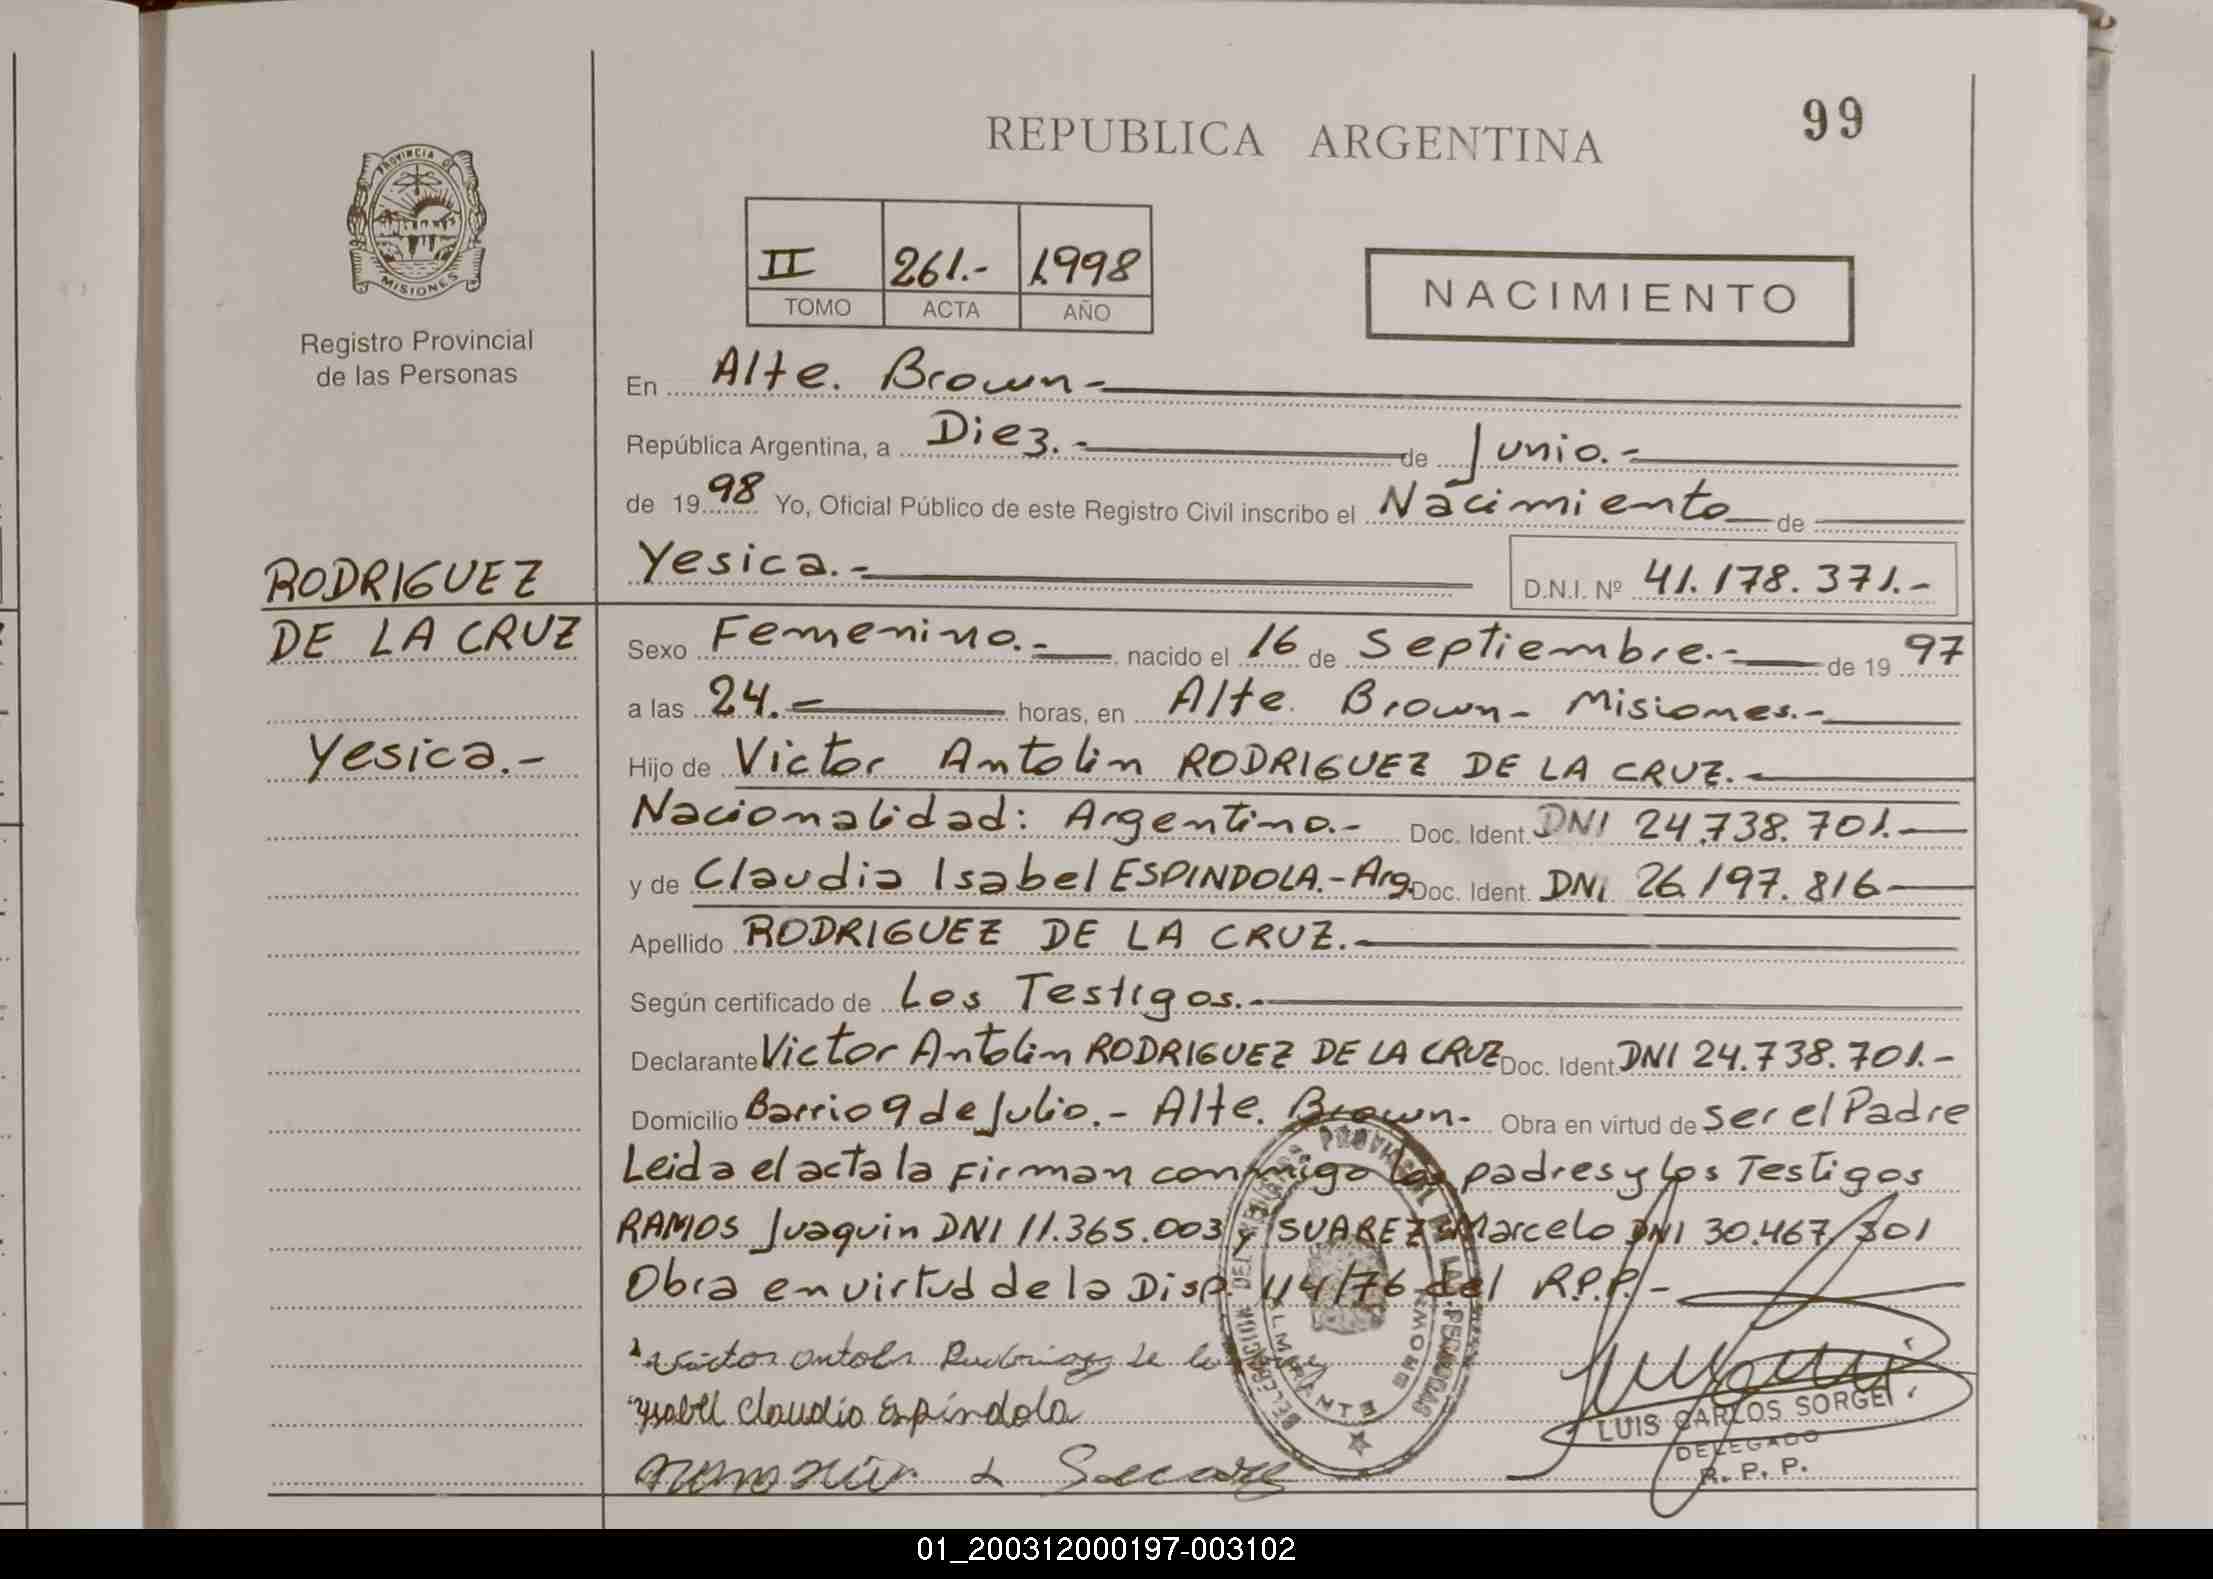 REPUBLICA ARGENTINA
99
PROVINCIA DE
MISIONES
Registro Provincial
de las Personas
II 261.- 1.998
TOMO ACTA AÑO
NACIMIENTO
En Alte. Brown-
República Argentina, a Diez.- de Junio.-
de 1998 Yo, Oficial Público de este Registro Civil inscribo el Nacimiento de
Yesica.- D.N.I. Nº 41.178.371.-
RODRIGUEZ
DE LA CRUZ
Yesica.-
Sexo Femenino.- nacido el 16 de Septiembre.- de 1997
a las 24.- horas, en Alte. Brown- Misiones.-
Hijo de Victor Antolin RODRIGUEZ DE LA CRUZ.-
Nacionalidad: Argentino.- Doc. Ident. DNI 24.738.701.-
y de Claudia Isabel ESPINDOLA.- Arg. Doc. Ident. DNI 26.197.816-
Apellido RODRIGUEZ DE LA CRUZ.-
Según certificado de Los Testigos.-
Declarante Victor Antolin RODRIGUEZ DE LA CRUZ Doc. Ident. DNI 24.738.701.-
Domicilio Barrio 9 de Julio.- Alte. Brown- Obra en virtud de ser el Padre
Leida el acta la Firman conmigo los padres y los Testigos
RAMOS Juaquin DNI 11.365.003 y SUAREZ Marcelo DNI 30.467.301
Obra en virtud de la Disp. 114/76 del R.P.P.-
Victor antolin Rodriguez de la
Ysabel Claudia Espíndola
DELEGACION DEL REGISTRO PROVINCIAL DE LAS PERSONAS
ALMIRANTE BROWN
LUIS CARLOS SORGE
DELEGADO
R. P. P.
01_200312000197-003102